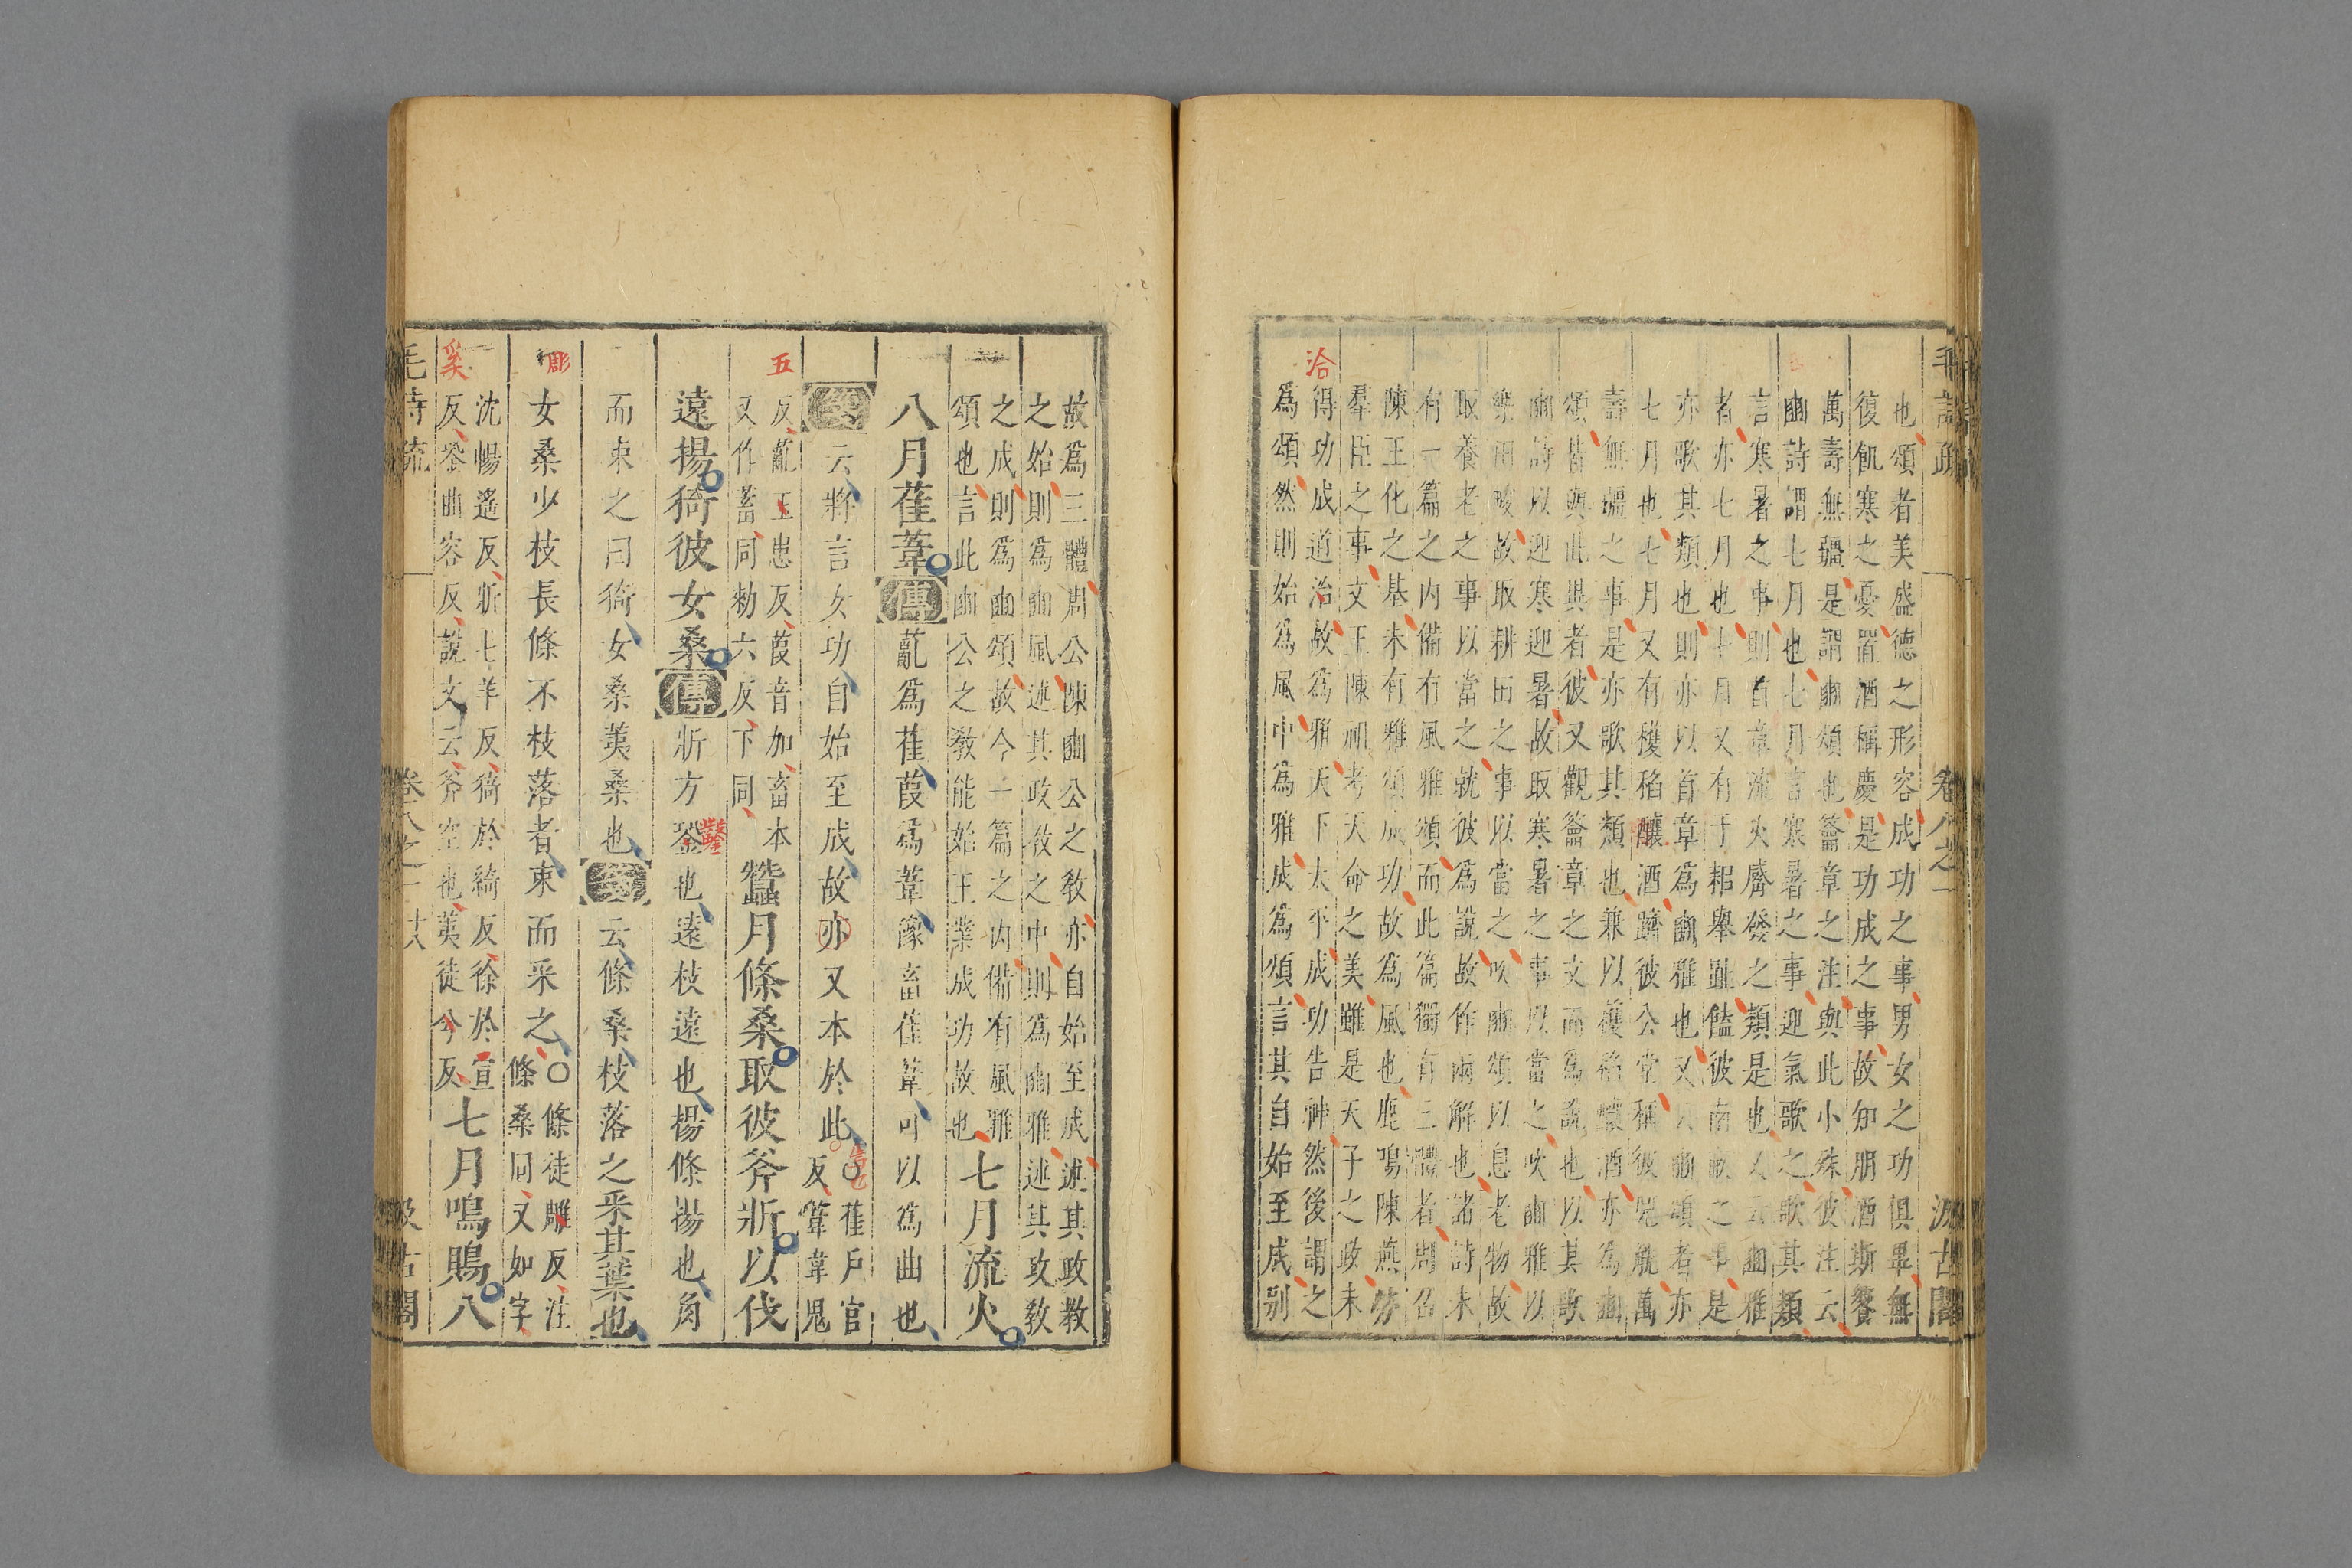 毛詩疏 卷八之一 汲古閣
也頌者美盛德之形容成功之事男女之功俱畢無
復飢寒之憂置酒稱慶是功成之事故知朋酒斯饗
萬壽無疆是謂豳頌也籥章之注與此小殊彼注云
豳詩謂七月也七月言寒暑之事迎氣歌之歌其類
言寒暑之事則首章流火觱發之類是也又云豳雅
者亦七月也七月又有于耜舉趾饁彼南畝之事是
亦歌其類也則亦以首章爲豳雅也又云豳頌者亦
七月也七月又有穫稻釀酒躋彼公堂稱彼兕觥萬
壽無疆之事是亦歌其類也兼以穫稻釀酒亦爲豳
頌皆與此異者彼又觀籥章之文而爲說也以其歌
豳詩以迎寒迎暑故取寒暑之事以當之吹豳雅以
樂田畯故取耕田之事以當之吹豳頌以息老物故
取養老之事以當之就彼爲說故作兩解也諸詩未
有一篇之内備有風雅頌而此篇獨有三體者周召
陳王化之基未有雅頌成功故爲風也鹿鳴陳燕勞
羣臣之事文王陳祖考天命之美雖是天子之政未
洽
得功成道洽故爲雅天下太平成功告神然後謂之
爲頌然則始爲風中爲雅成爲頌言其自始至成别
故爲三體周公陳豳公之敎亦自始至成述其政教
之始則爲豳風述其政教之中則爲豳雅述其政敎
之成則爲豳頌故今一篇之内備有風雅
頌也言此豳公之敎能始王業成功故也
七月流火
八月萑葦傳薍爲萑葭爲葦豫畜萑葦可以爲曲也
箋云將言女功自始至成故亦又本於此
○萑戶官
反葦韋鬼
五
反薍五患反葭音加畜本
又作蓄同勑六反下同
蠶月條桑取彼斧斨以伐
遠揚猗彼女桑傳斨方銎也遠枝遠也揚條揚也角
而束之曰猗女桑荑桑也箋云條桑枝落之采其葉也
彫
女桑少枝長條不枝落者束而采之
○條徒雕反注
條桑同又如字
奚
沈暢遙反斨七羊反猗於綺反徐於宜
反銎曲容反說文云斧空也荑徒兮反
七月鳴鵙八
毛詩疏 卷八之一 十八 汲古閣